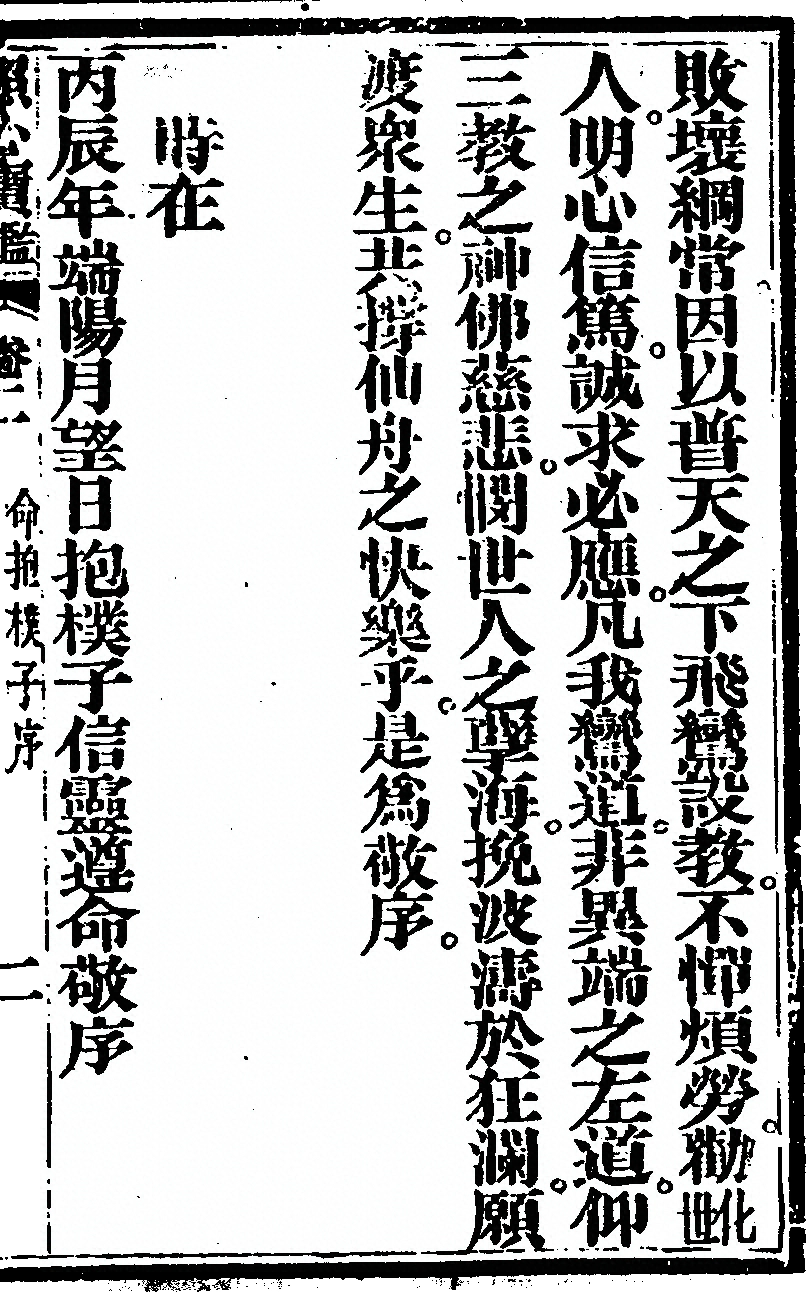 敗壞綱常因以普天之下飛鸞設教。不憚煩勞。勸世化
人。明心信篤。誠求必應。凡我鸞道。非異端之左道。仰
三教之神佛慈悲。憫世人之孽海。挽波濤於狂瀾。願
渡衆生。共撑仙舟之快樂乎。是為敬序。
時在
丙辰年端陽月望日抱樸子信靈遵命敬序
寶鑑 卷二 命抱樸子序 二